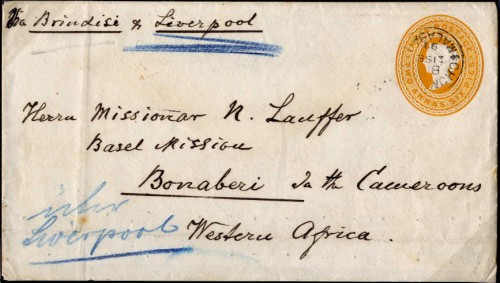 Via Brindisi & Liverpool
Herrn Missionar N. Lauffer
Basel Mission
Bonaberi In th Cameroons
über
Liverpool
Western Africa.
ANNAS SIX PIES